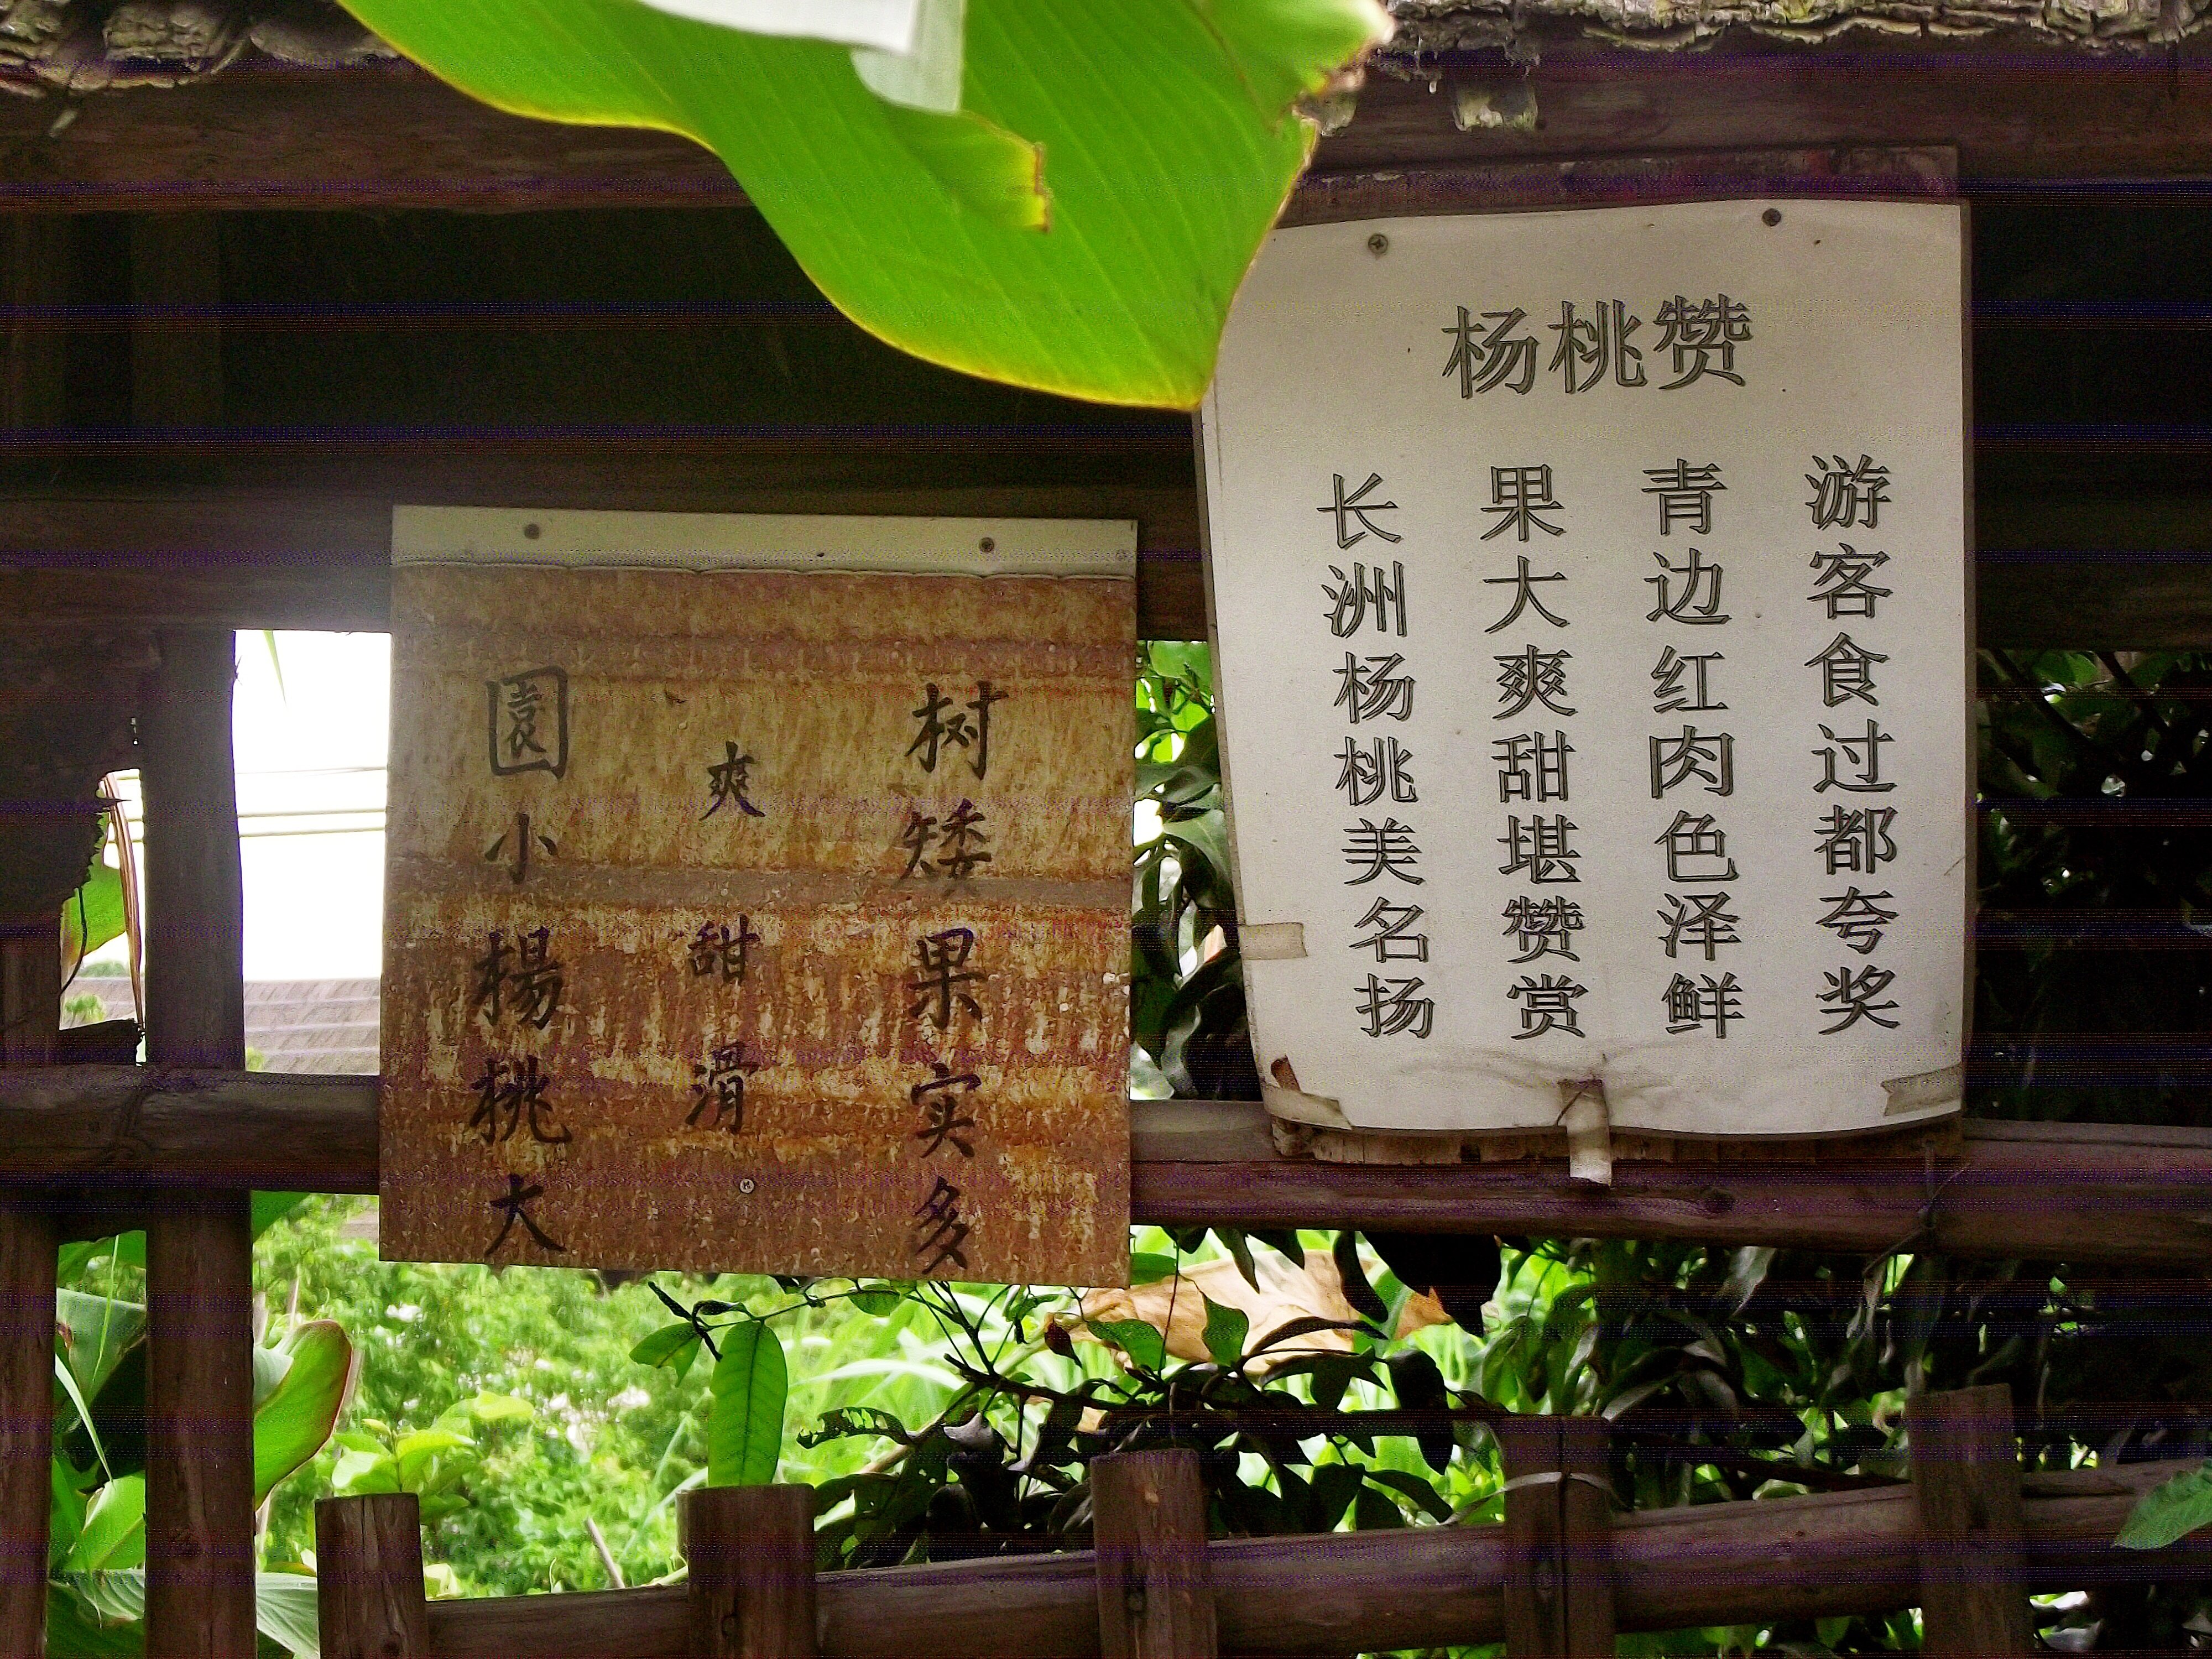 園小楊桃大
爽甜滑
树矮果实多
杨桃赞
长洲杨桃美名扬
果大爽甜堪赞赏
青边红肉色泽鲜
游客食过都夸奖